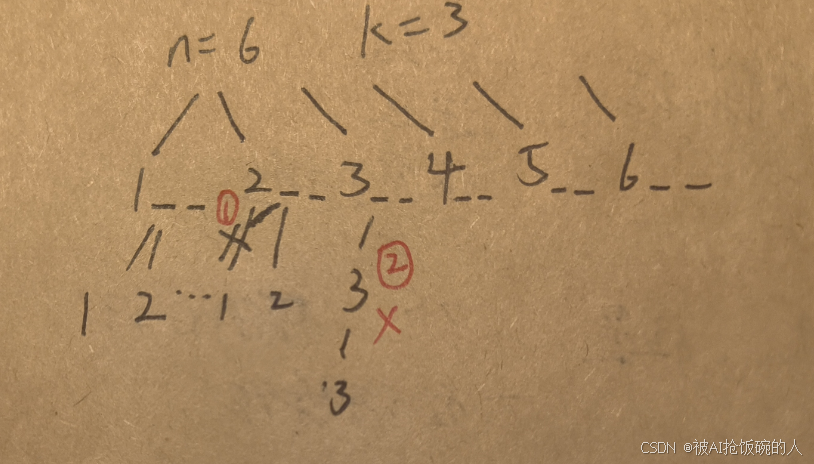 n=6 k=3
1_ _ 2_ _ 3_ _ 4_ _ 5_ _ 6_ _
①
②
1 2 ... 1 2 3
X
3
CSDN @被AI抢饭碗的人